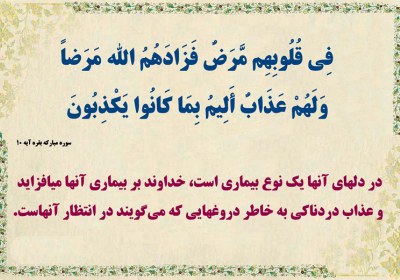 فِی قُلُوبِهِم مَّرَضٌ فَزَادَهُمُ الله مَرَضاً
وَلَهُمْ عَذَابٌ أَلِیمُ بِمَا کَانُوا یَکْذِبُونَ
سوره مبارکه بقره آیه ۱۰
در دلهای آنها یک نوع بیماری است، خداوند بر بیماری آنها میافزاید
و عذاب دردناکی به خاطر دروغهایی که می‌گویند در انتظار آنهاست.